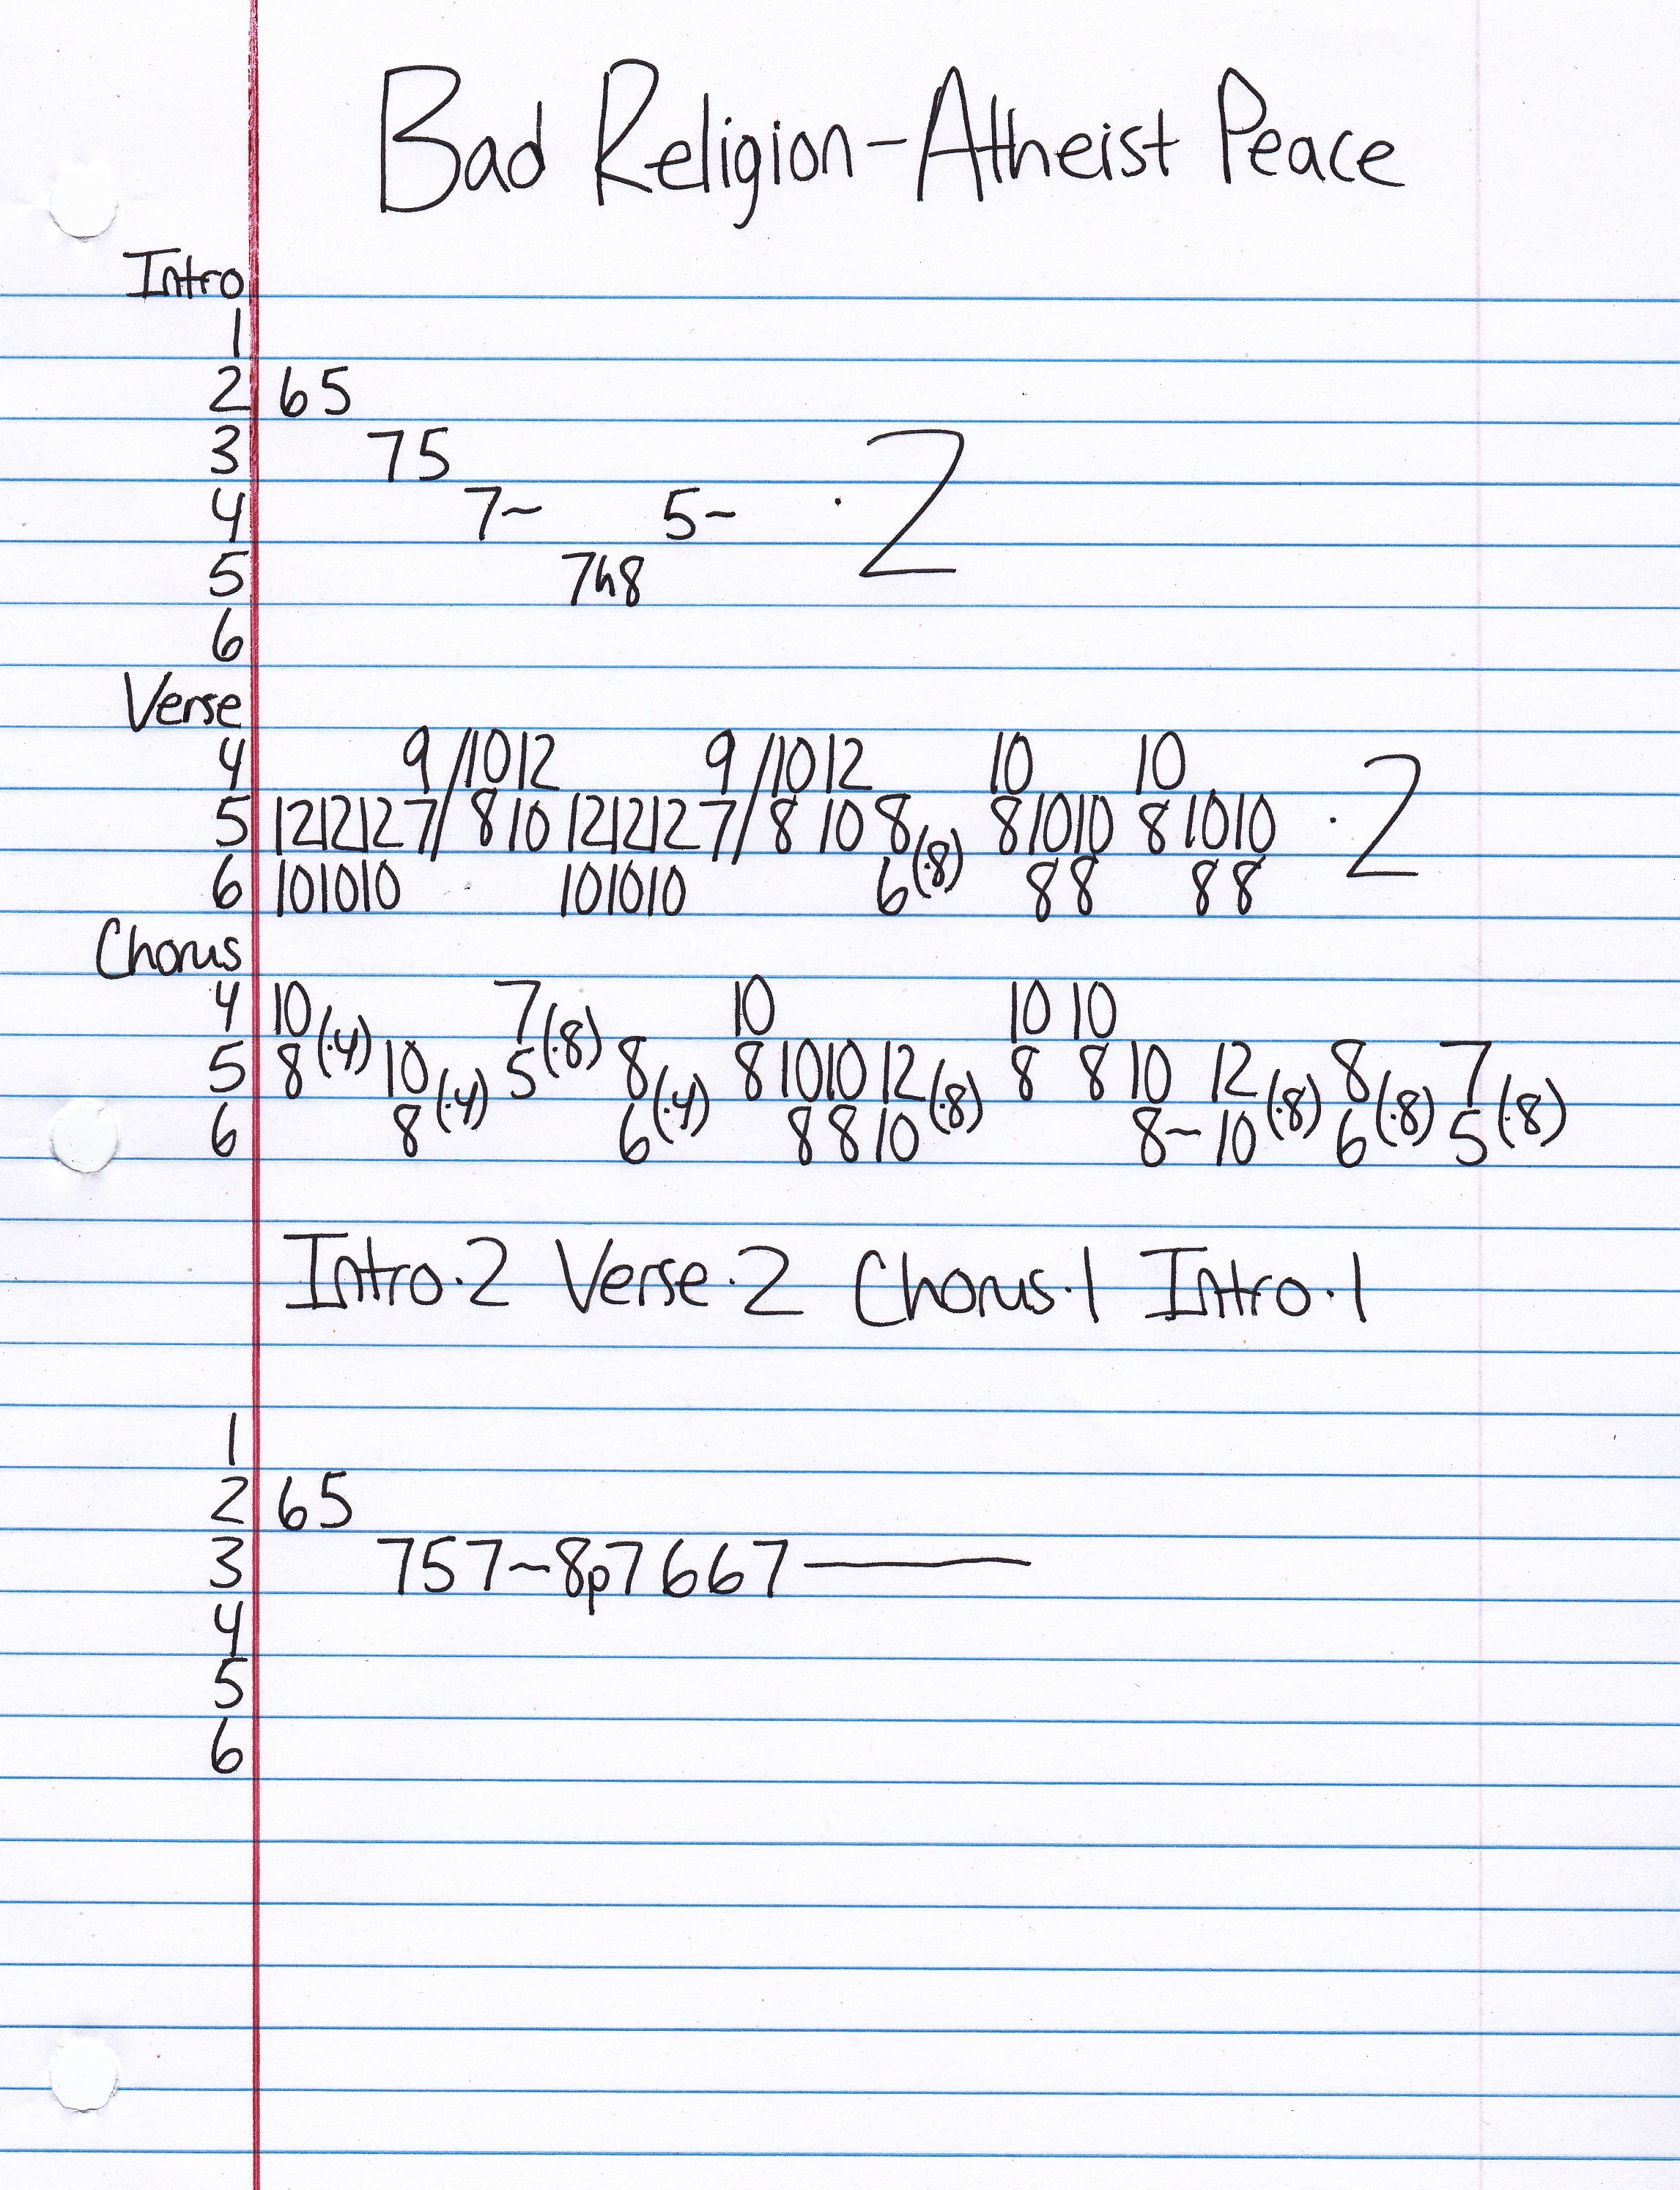 Bad Religion-Atheist Peace
Intro
1
2 65
3 75
4 7~ 5~ ·2
5 7h8
6
Verse
4 9/10 12 9/10 12 10 10
5 12 12 12 7/8 10 12 12 12 7/8 10 8 (·8) 8 10 10 8 10 10 ·2
6 10 10 10 10 10 10 6 8 8 8 8
Chorus
4 10 (·4) 7 (·8) 10 10 10
5 8 10 (·4) 5 8 (·4) 8 10 10 12 (·8) 8 8 10 12 (·8) 8 (·8) 7 (·8)
6 8 6 8 8 10 8~10 6 5
Intro·2 Verse·2 Chorus·1 Intro·1
1
2 65
3 757~8p7667—
4
5
6